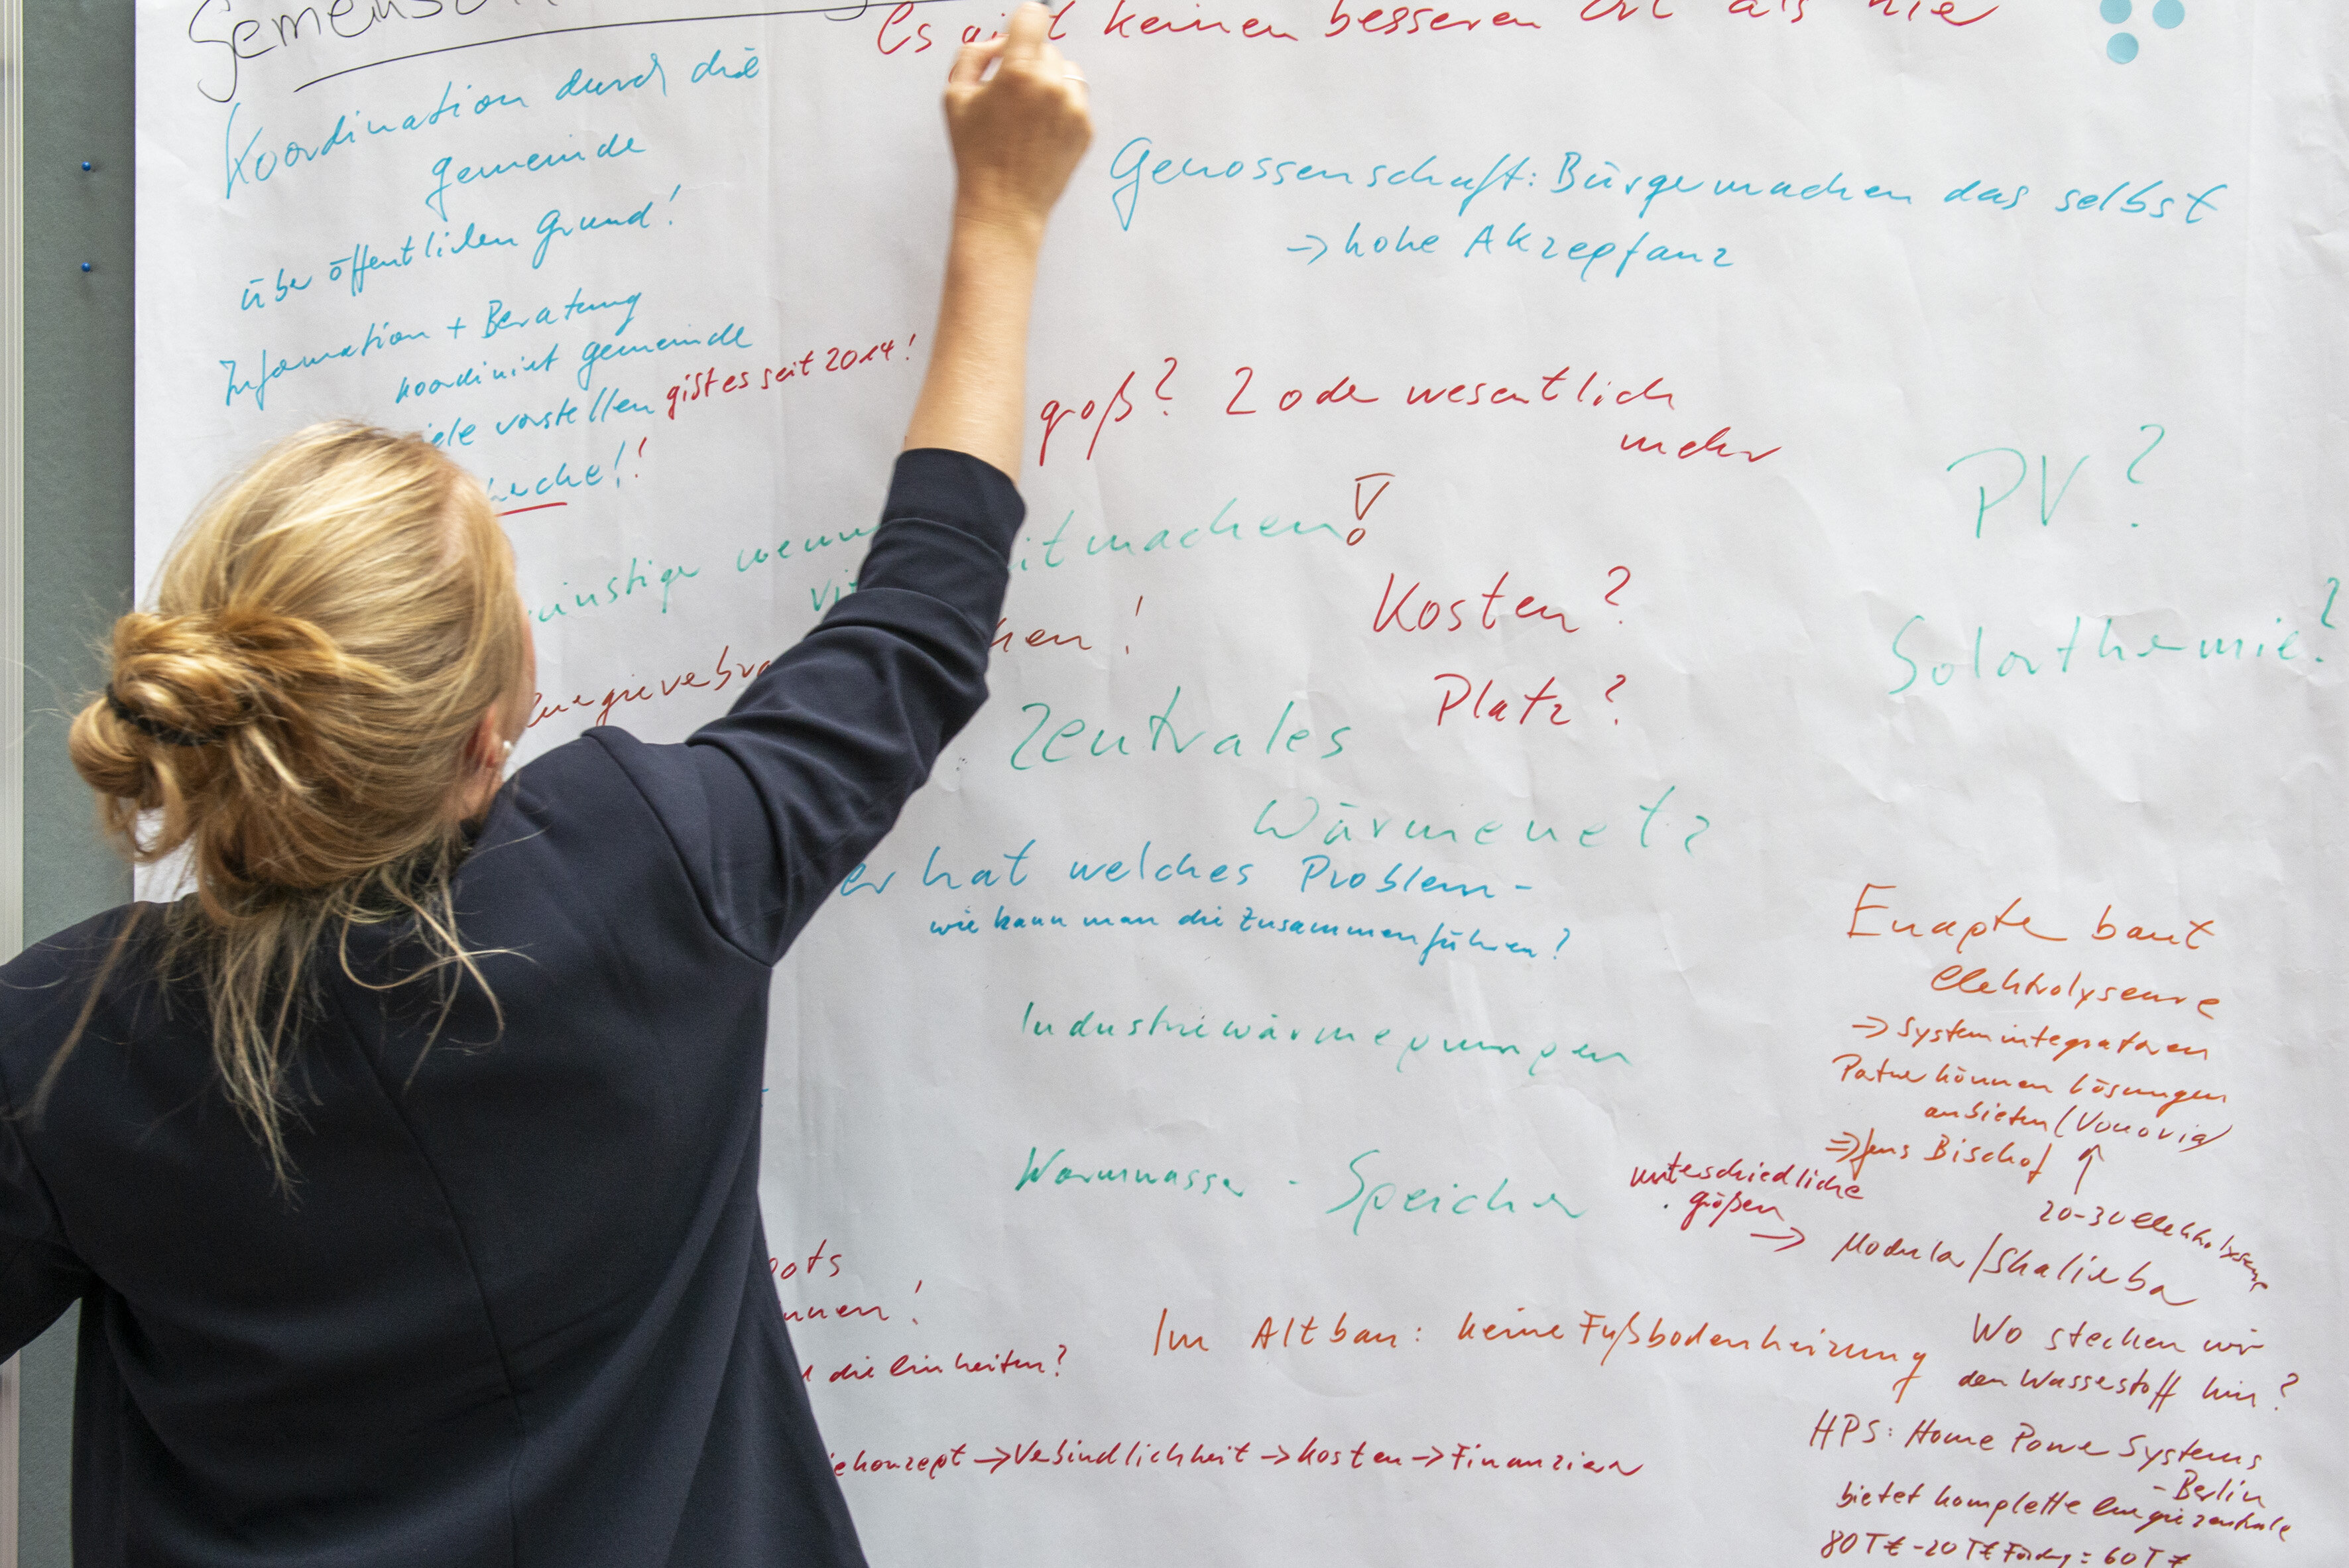 Es gibt keinen besseren Ort als hie
Koordination durch die
Gemeinde
über öffentlichen Grund!
Information + Beratung
koordiniert Gemeinde
vorstellen gibt es seit 2014!
Genossenschaft: Bürger machen das selbst
→ hohe Akzeptanz
groß? 2 oder wesentlich
mehr
wenn
itmachen!
PV?
Kosten?
Platz?
Solarthermie?
Zentrales
Wärmenetz
er hat welches Problem -
wie kann man die zusammenführen?
Industriewärmepumpen
Warmwasser - Speicher
Enapter baut
Elektrolyseure
→ Systemintegratoren
Partner können Lösungen
anbieten (Vonovia)
⇒ Jens Bischof ↑
20-30 Elektrolyseure
unterschiedliche
größen
→ Modular/Skalierbar
ots
nnen!
die Einheiten?
Im Altbau: keine Fußbodenheizung
Wo stecken wir
den Wasserstoff hin?
ekonzept → Verbindlichkeit → Kosten → Finanzierer
HPS: Home Power Systems
- Berlin
bietet komplette Energiezentrale
80 T€ - 20 T€ Förderg = 60 T€